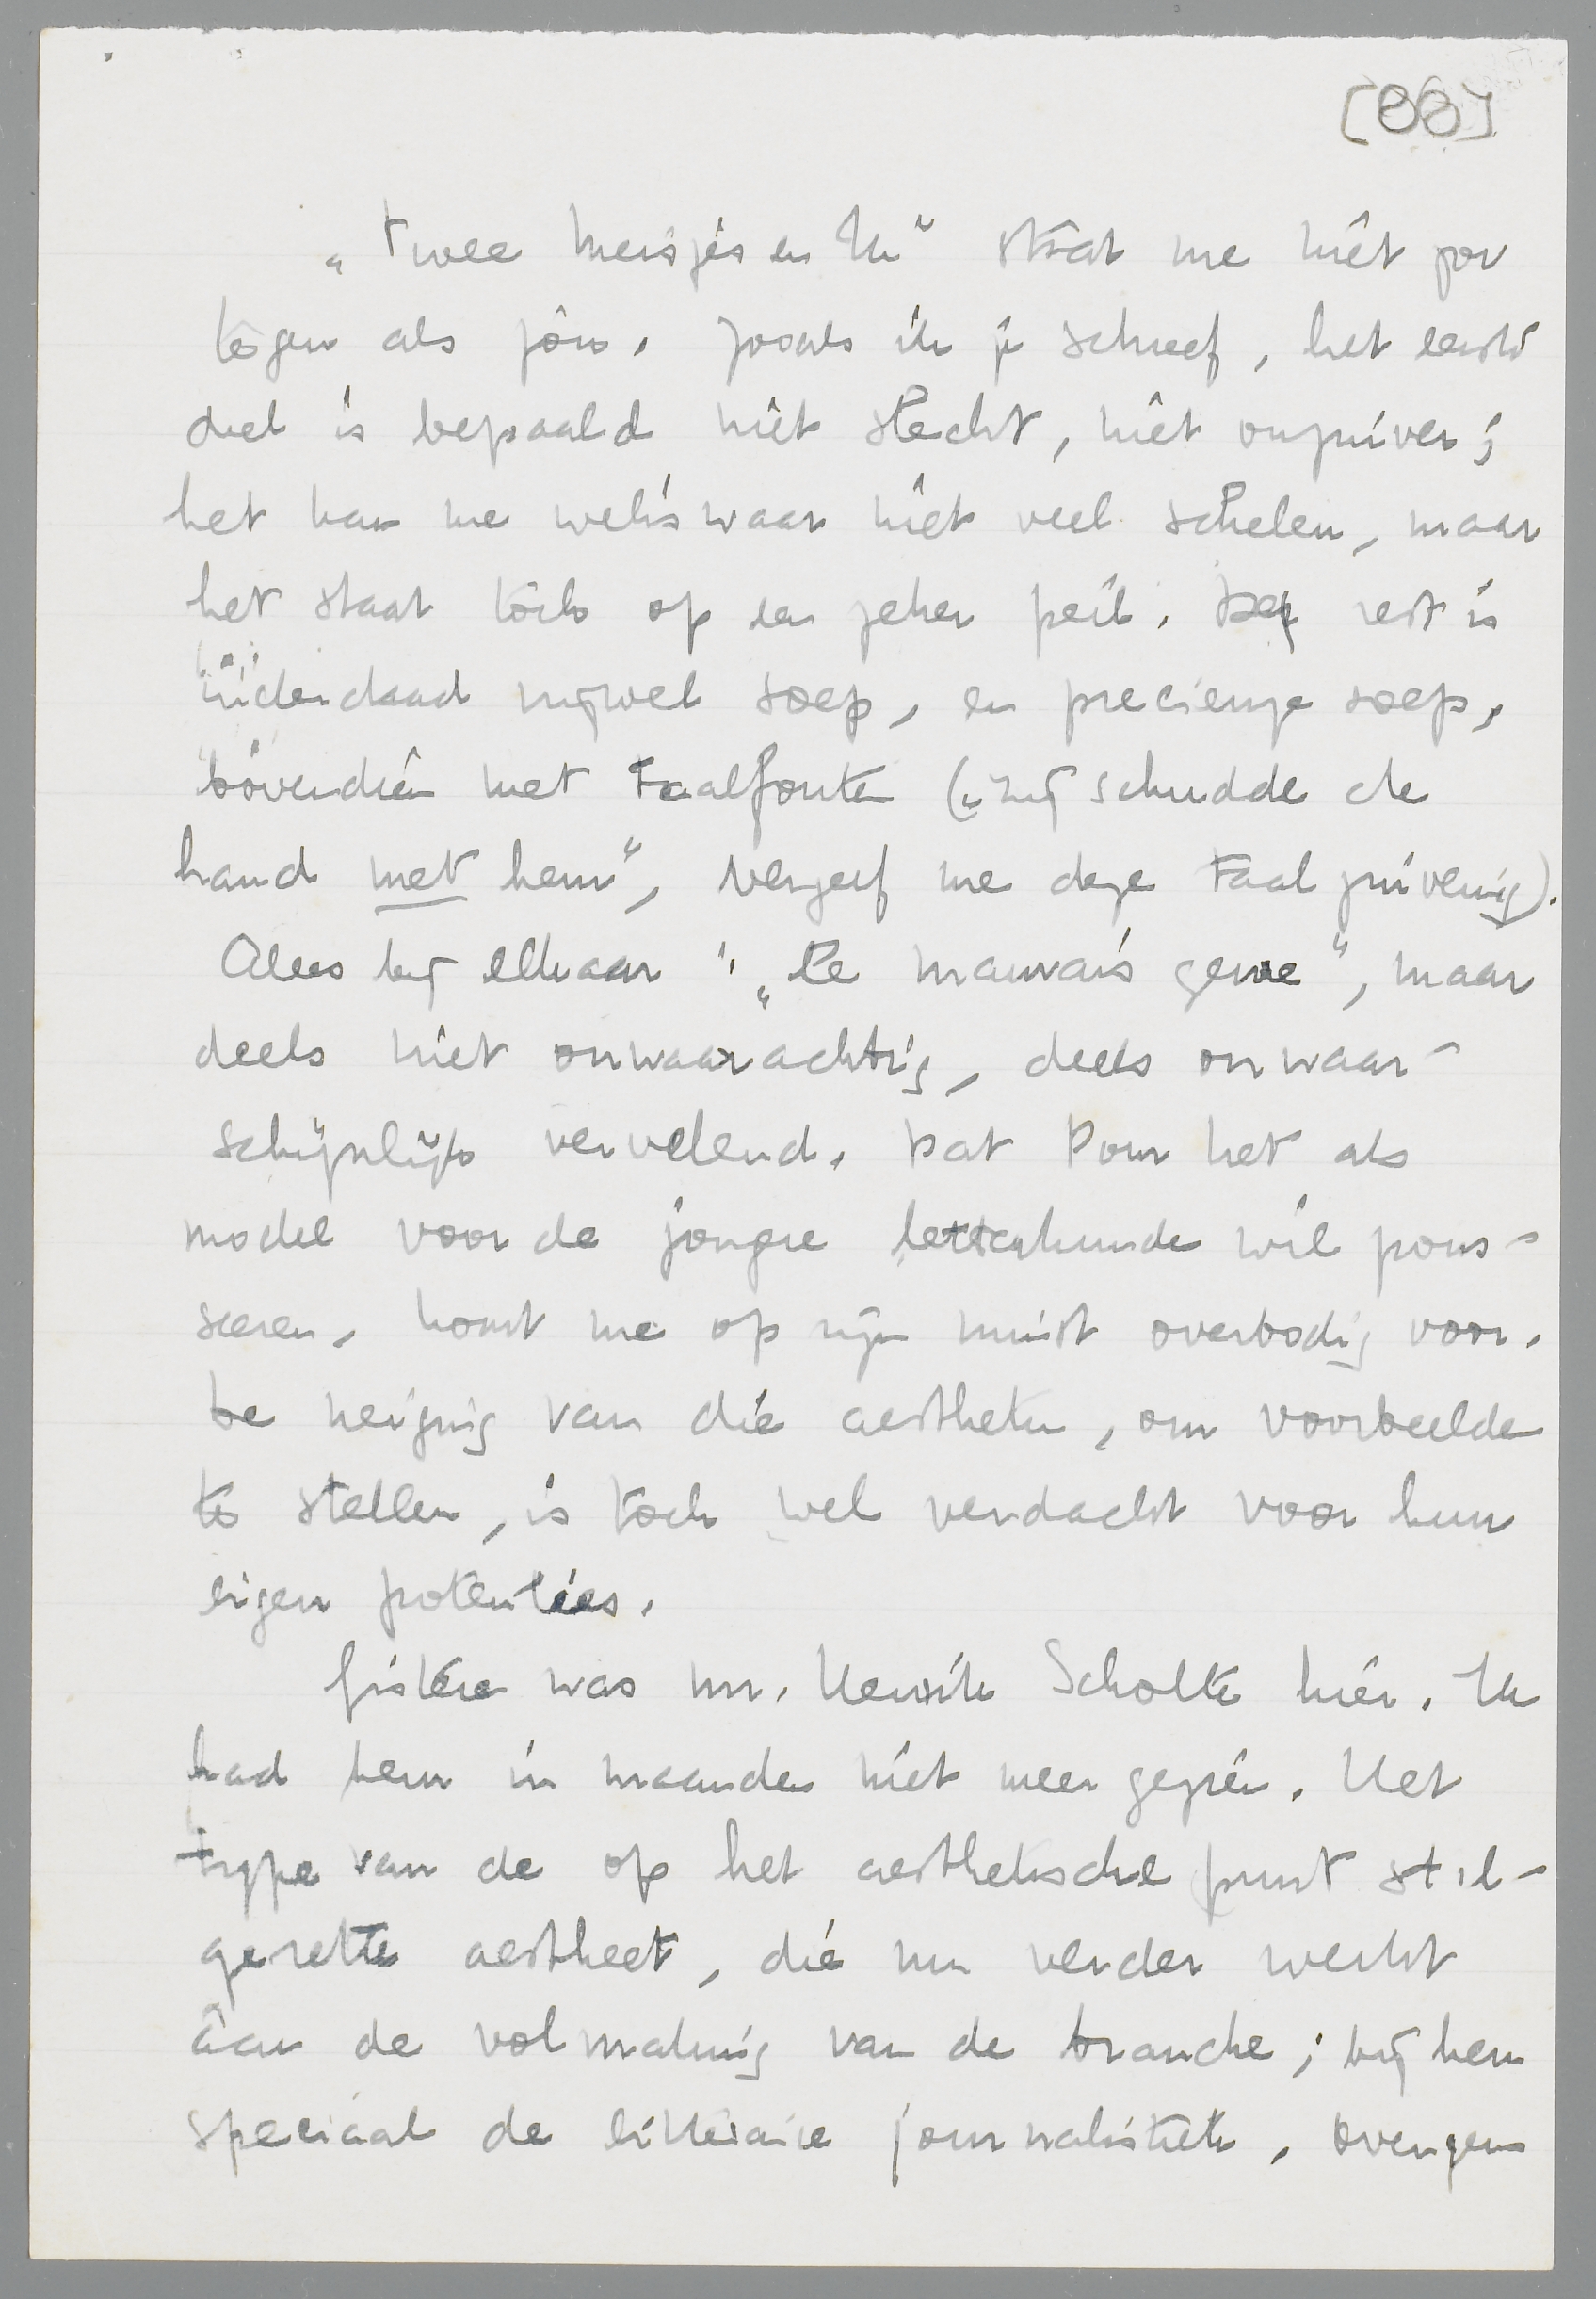 [88]
„Twee meisjes en ik” staat me niet zoo
tegen als jou. Zooals ik je schreef, het eerste
deel is bepaald niet slecht, niet onzuiver;
het kan me weliswaar niet veel schelen, maar
het staat toch op een zeker peil. De rest is
inderdaad vrijwel soep, en precieuze soep,
bovendien met taalfouten („zij schudde de
hand met hem”, vergeef me deze taalzuivering).
Alles bij elkaar: „le mauvais genre”, maar
deels niet onwaarachtig, deels onwaar-
schijnlijk vervelend. Dat Dom het als
model voor de jongere letterkunde wil pous-
seeren, komt me op zijn minst overbodig voor.
De neiging van die aestheten, om voorbeelden
te stellen, is toch wel verdacht voor hun
eigen potenties.
Gisteren was mr. Henrik Scholte hier. Ik
had hem in maanden niet meer gezien. Het
type van de op het aesthetische punt stil-
gezette aestheet, die nu verder werkt
aan de volmaking van de branche; bij hem
speciaal de litteraire journalistiek. Overigens